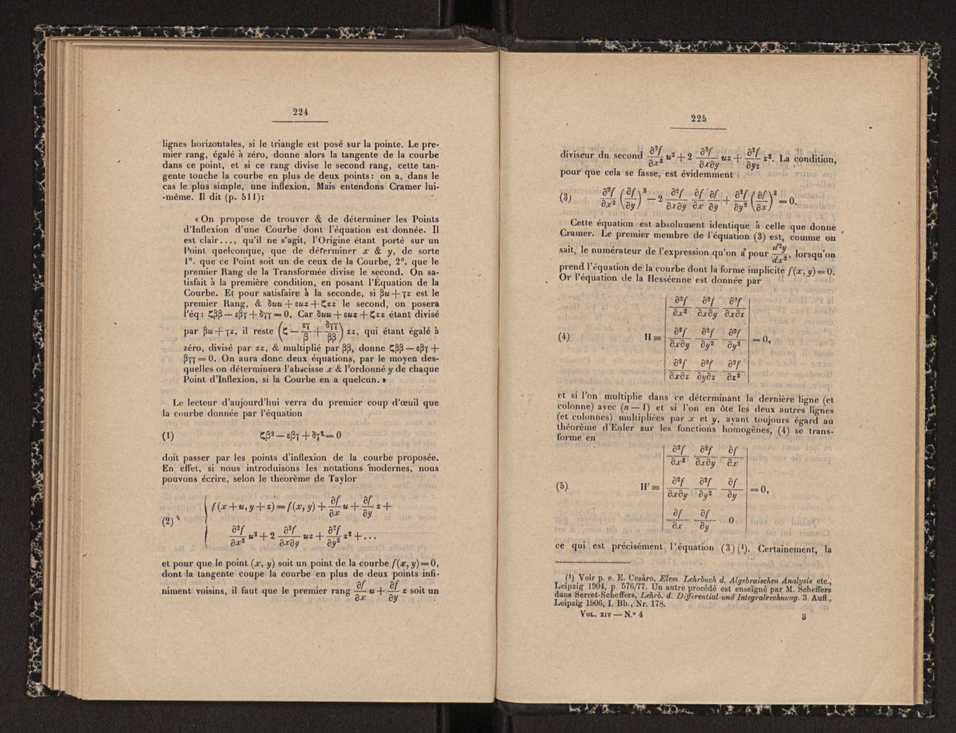 224
lignes horizontales, si le triangle est posé sur la pointe. Le pre-
mier rang, égalé à zéro, donne alors la tangente de la courbe
dans ce point, et si ce rang divise le second rang, cette tan-
gente touche la courbe en plus de deux points: on a, dans le
cas le plus simple, une inflexion. Mais entendons Cramer lui-
-même. Il dit (p. 511):
«On propose de trouver & de déterminer les Points
d'Inflexion d'une Courbe dont l'équation est donnée. Il
est clair...., qu'il ne s'agit, l'Origine étant porté sur un
Point quelconque, que de déterminer x & y, de sorte
1º. que ce Point soit un de ceux de la Courbe, 2º. que le
premier Rang de la Transformée divise le second. On sa-
tisfait à la première condition, en posant l'Equation de la
Courbe. Et pour satisfaire à la seconde, si βu + γz est le
premier Rang, & δuu + εuz + ζzz le second, on posera
l'éq: ζββ — εβγ + δγγ = 0. Car δuu + εuz + ζzz étant divisé
par βu + γz, il reste (ζ — εγ/β + δγγ/ββ) zz, qui étant égalé à
zéro, divisé par zz, & multiplié par ββ, donne ζββ — εβγ +
βγγ = 0. On aura donc deux équations, par le moyen des-
quelles on déterminera l'abscisse x & l'ordonné y de chaque
Point d'Inflexion, si la Courbe en a quelcun.»
Le lecteur d'aujourd'hui verra du premier coup d'œuil que
la courbe donnée par l'équation
(1) ζβ² — εβγ + δγ² = 0
doit passer par les points d'inflexion de la courbe proposée.
En effet, si nous introduisons les notations modernes, nous
pouvons écrire, selon le theorème de Taylor
(2) { f(x + u, y + z) = f(x, y) + ∂f/∂x u + ∂f/∂y z +
∂²f/∂x² u² + 2 ∂²f/∂x∂y uz + ∂²f/∂y² z² + ...
et pour que le point (x, y) soit un point de la courbe f(x, y) = 0,
dont la tangente coupe la courbe en plus de deux points infi-
niment voisins, il faut que le premier rang ∂f/∂x u + ∂f/∂y z soit un
225
diviseur du second ∂²f/∂x² u² + 2 ∂²f/∂x∂y uz + ∂²f/∂y² z². La condition,
pour que cela se fasse, est évidemment
(3) ∂²f/∂x² (∂f/∂y)² — 2 ∂²f/∂x∂y ∂f/∂x ∂f/∂y + ∂²f/∂y² (∂f/∂x)² = 0.
Cette équation est absolument identique à celle que donne
Cramer. Le premier membre de l'équation (3) est, comme on
sait, le numérateur de l'expression qu'on a pour d²y/dx², lorsqu'on
prend l'équation de la courbe dont la forme implicite f(x, y) = 0.
Or l'équation de la Hesséenne est donnée par
∂²f/∂x² ∂²f/∂x∂y ∂²f/∂x∂z
(4) H ≡ ∂²f/∂x∂y ∂²f/∂y² ∂²f/∂y² = 0,
∂²f/∂x∂z ∂²f/∂y∂z ∂²f/∂z²
et si l'on multiplie dans ce déterminant la dernière ligne (et
colonne) avec (n — 1) et si l'on en ôte les deux autres lignes
(et colonnes) multipliées par x et y, ayant toujours égard au
théorème d'Euler sur les fonctions homogènes, (4) se trans-
forme en
∂²f/∂x² ∂²f/∂x∂y ∂f/∂x
(5) H' ≡ ∂²f/∂x∂y ∂²f/∂y² ∂f/∂y = 0,
∂f/∂x ∂f/∂y 0
ce qui est précisément l'équation (3) (¹). Certainement, la
(¹) Voir p. e. E. Cesàro, Elem. Lehrbuch d. Algebraischen Analysis etc.,
Leipzig 1904, p. 576/77. Un autre procédé est enseigné par M. Scheffers
dans Serret-Scheffers, Lehrb. d. Differential-und Integralrechnung. 3. Aufl.,
Leipzig 1906, I. Bb., Nr. 178.
VOL. XIV — N.º 4 3